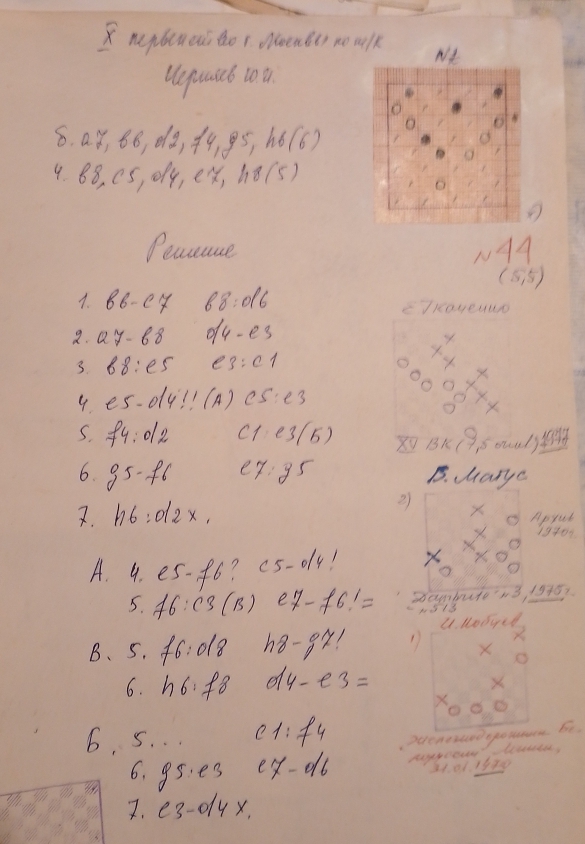 X первенство г. Москвы по ш/к
Церилев Ю.И.
N1
Б. a7, b6, d2, f4, g5, h6 (6)
Ч. b8, c5, d4, e7, h8 (5)
N44
(5,5)
Решение
1. b6-c7 b8:d6
2. a7-b8 d4-e3
3. b8:e5 e3:c1
4. e5-d4!! (A) c5:e3
5. f4:d2 c1:e3 (Б)
6. g5-f6 e7:g5
7. h6:d2x.
A. 4. e5-f6? c5-d4!
5. f6:c3 (В) e7-f6! =
В. 5. f6:d8 h8-g7!
6. h6:f8 d4-e3 =
Б. 5. ... c1:f4
6. g5:e3 e7-d6
7. e3-d4x.
Е. Ткаченко
XV ВК (7,5 очков)
В. Матус
2)
Архив
1970г.
N3, 1975г.
N513
1)
Минск,